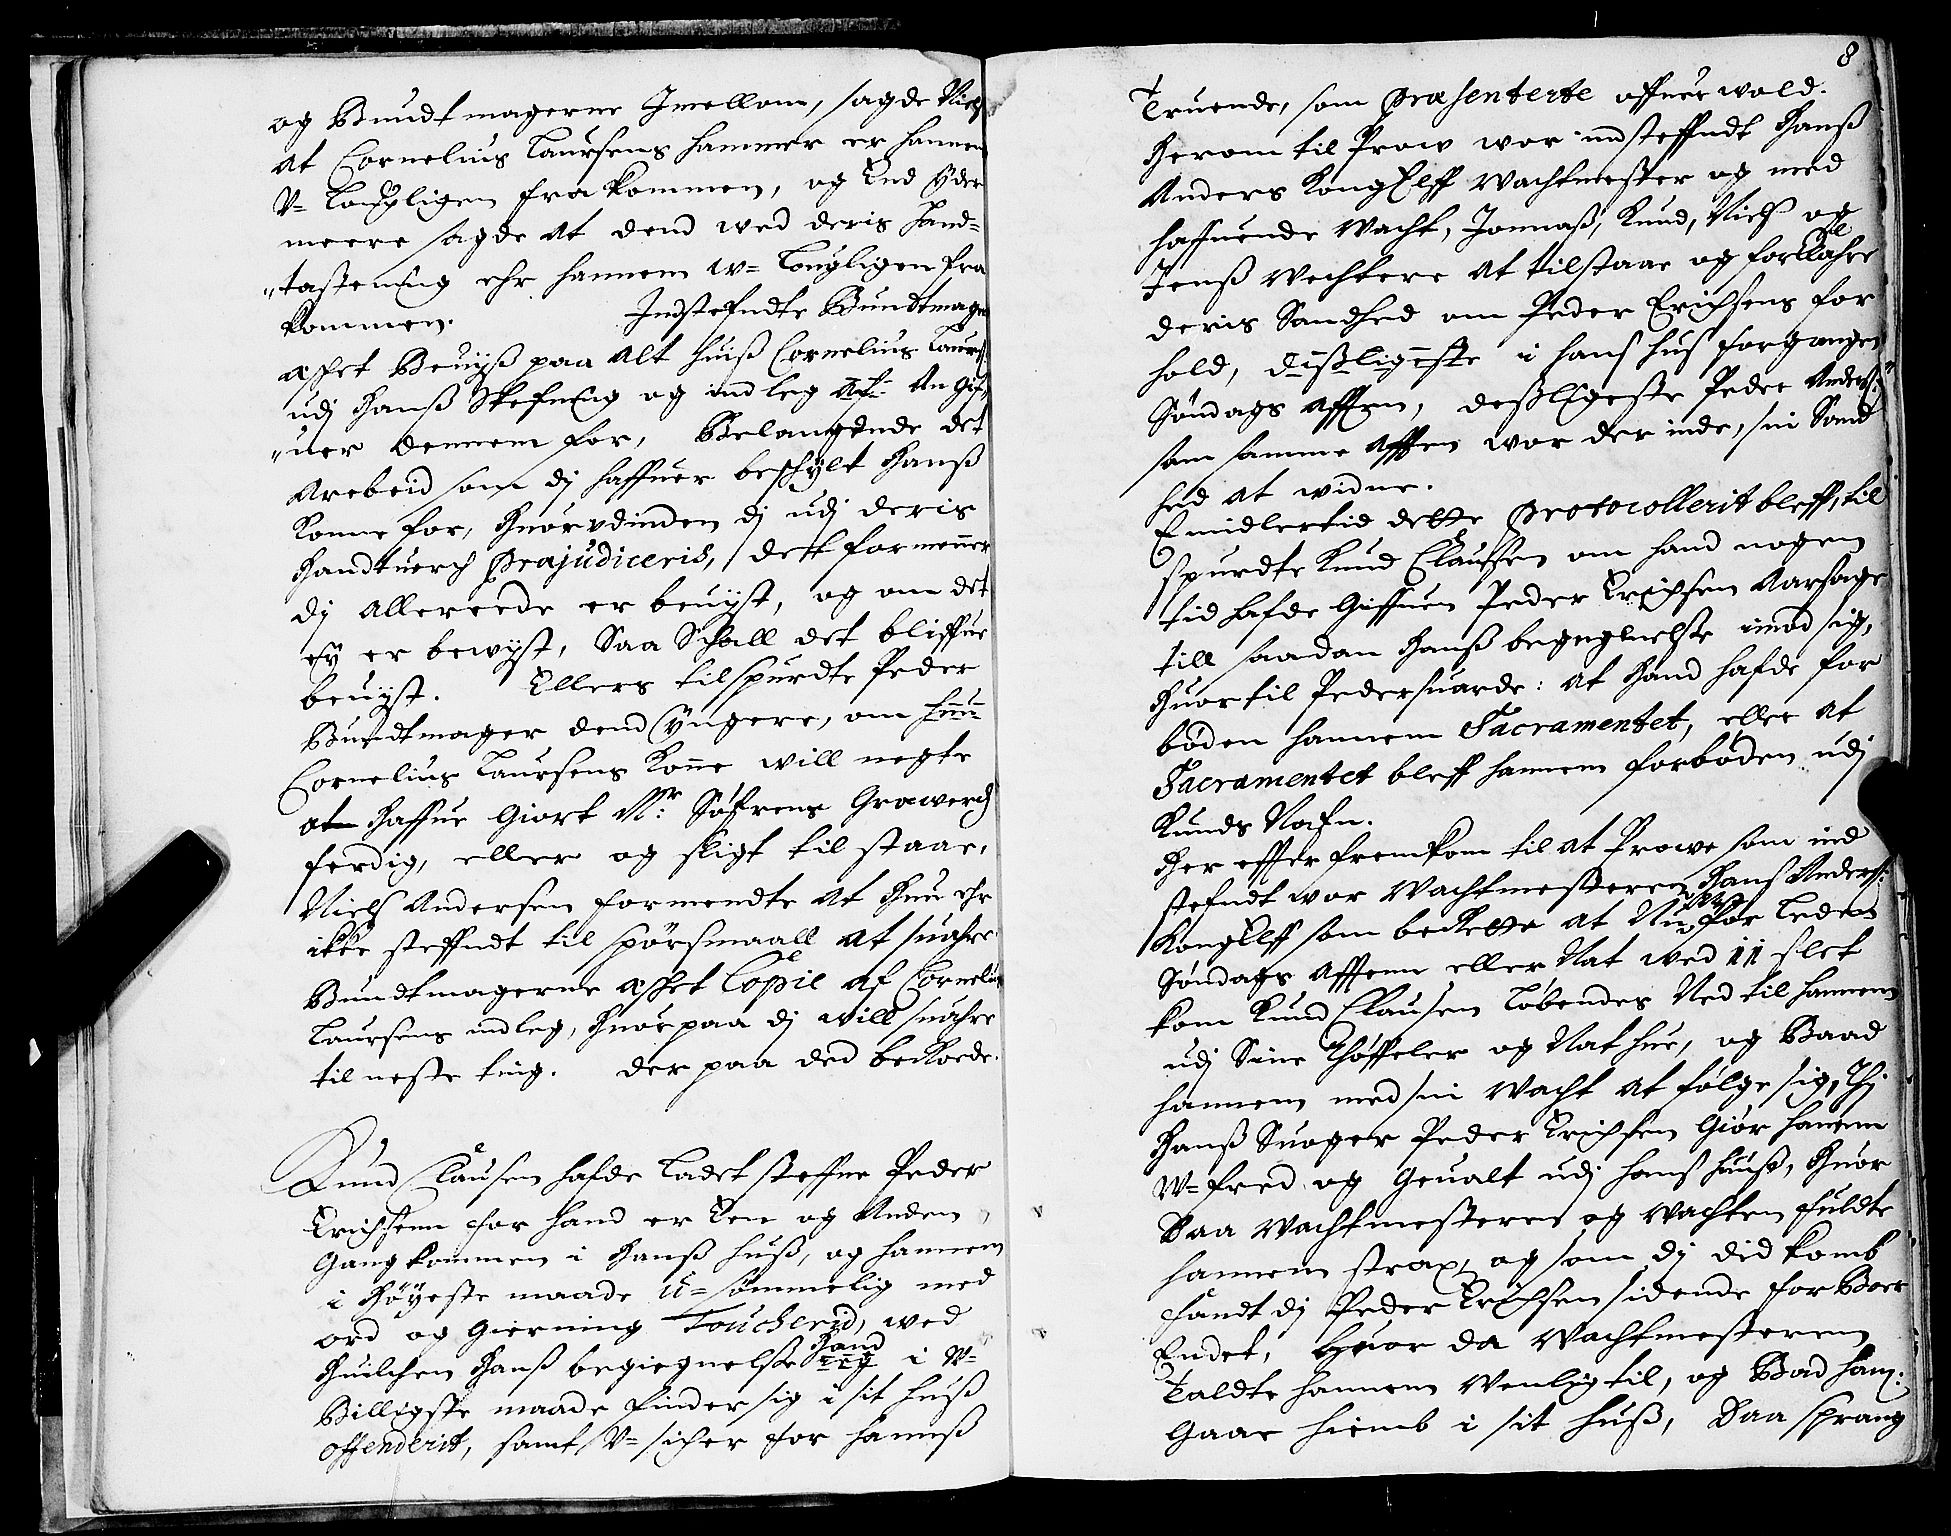 og Bundtmagerne Imellom, sagde Niels
At Cornelius Laursens hammer er hannem
V= Lougligen frakommen, og End Yder
meere sagde At dend wed deris Hand=
"tastening ehr hannem w= Lougligen fra
kommen. Indstefndte Bundtmager
æsket Beuiiß paa Alt huiß Cornelius Laurs:
udj Hanß Stefning og indleg An Gif,
"uer dennem for, Belangende det
Arebeid som dj haffuer beskylt Hanß
Konne for, Huorudinden dj udj deris
Handtuerch Præjudiceris, dett formener
dj Allereede er beuiist, og om det
ey er bewist, Saa Schall det bliffue
beuiist. Ellers tilspurdte Peder
Bundtmager dend Yngere, om
Cornelius Laursens Kone will negte
at Haffue Giort Mr: Søfrens Grawerch
ferdig, eller og sligt tilstaar,
Niels Andersen formendte At Hun ehr
ikke steffndt til spörsmaall At suahre
Bundtmagerne æsket Copie Af Cornelius
Laursens indleg, Huorpaa dj will suahre
til neste ting. der paa ded beroede.
Knud Clausen hafde Ladet steffne Peder
Erichsenn for hand er Een og Anden
Gang kommen i Hanß huß, og hannem
i Höyeste maade U=sömmelig med
ord og Gierning Toucherid, wed
Huilchen Hanß begiegnelse Hand i V=
Billigste maade finder sig i sit huß
offenderit, samt V=sicher for hanß
8
Truende, som præsenterte offuer wold.
Herom til Prow war indsteffndt Hanß
Anders KongElff Wachtmester og med
haffuende Wacht, Jonnaß, Knud, Niels og
Jenß Wechtere At tilstaae og forklahre
deris Sandhed om Peder Erichsens for
hold, i hans hus forgangen
Söndags Afften, deßligeste Peder Anders:
som samme Afften war der inde, sin Sand
hed At widne.
Emidlertid dette Protocollerit bleff, til
spurdte Knud Clausen om hand nogen
tid hafde Giffuen Peder Erichsen Aarsage
till saadan Hanß begegnelse imod sig,
Huortil Peder suarde: At Hand hafde for
böden hannem Sacramentet, eller At
Sacramentet bleff hannem forböden udj
Knuds Nafn.
Her effter fremkom til at Prowe som ind
stefndt war Wachtmesteren Hans Anders:
KongElff som berette At Nu for Leden
Söndags Afftenn eller Nat wed 11 slet
kom Knud Clausen Löbendes Ned til hannem
udj Sine Töffeler og Nathue, og Baad
hannem med sin Wacht At fölge sig, Thj
Hanß Suoger Peder Erichsen Giör hannem
W=fred og Geualt udj hans huuß, Huor
Daa Wachtmesteren og Wachten fuldte
hannem strax, og som dj did komb
fandt dj Peder Erichsen sidende for Boer
Endet, Huor da Wachtmesteren
Taldte hannem Wenlig til, og Bad ham:
Gaae hiemb i sit huß, Daa sprang